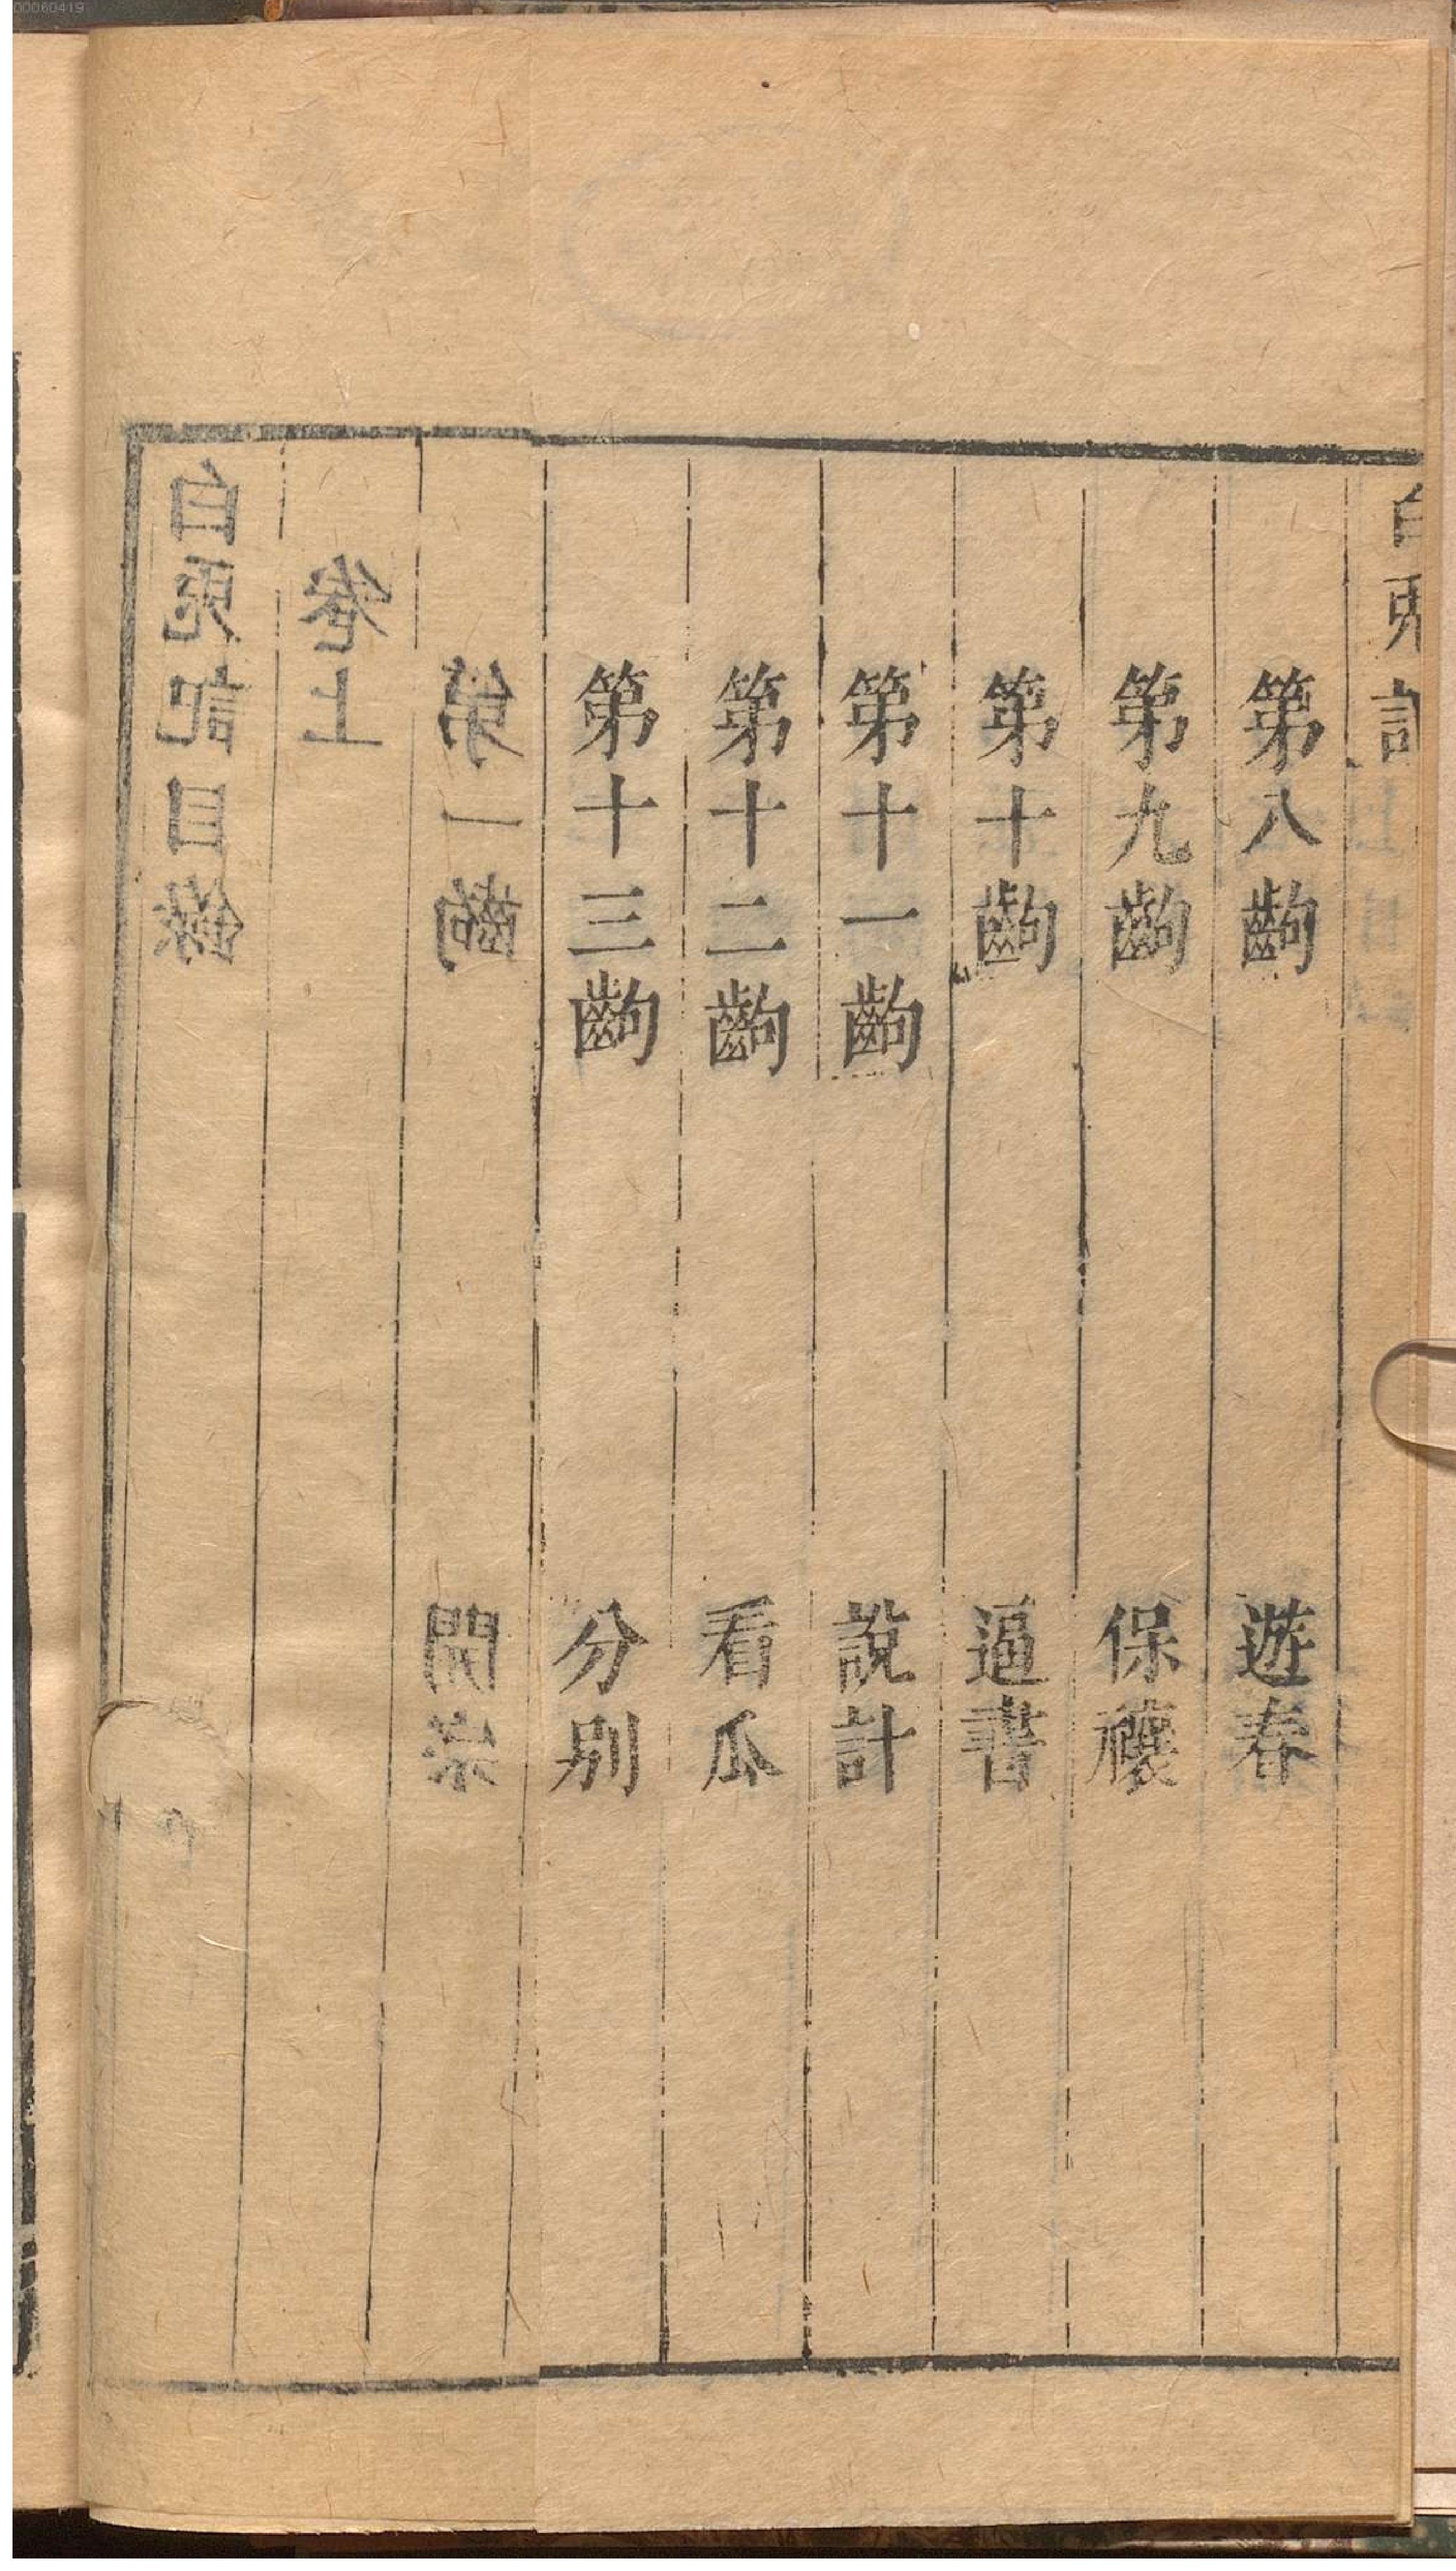 00060419
白兎記
第八齣 遊春
第九齣 保禳
第十齣 逼書
第十一齣 說計
第十二齣 看瓜
第十三齣 分別
第一齣 開宗
卷上
白兎記目錄